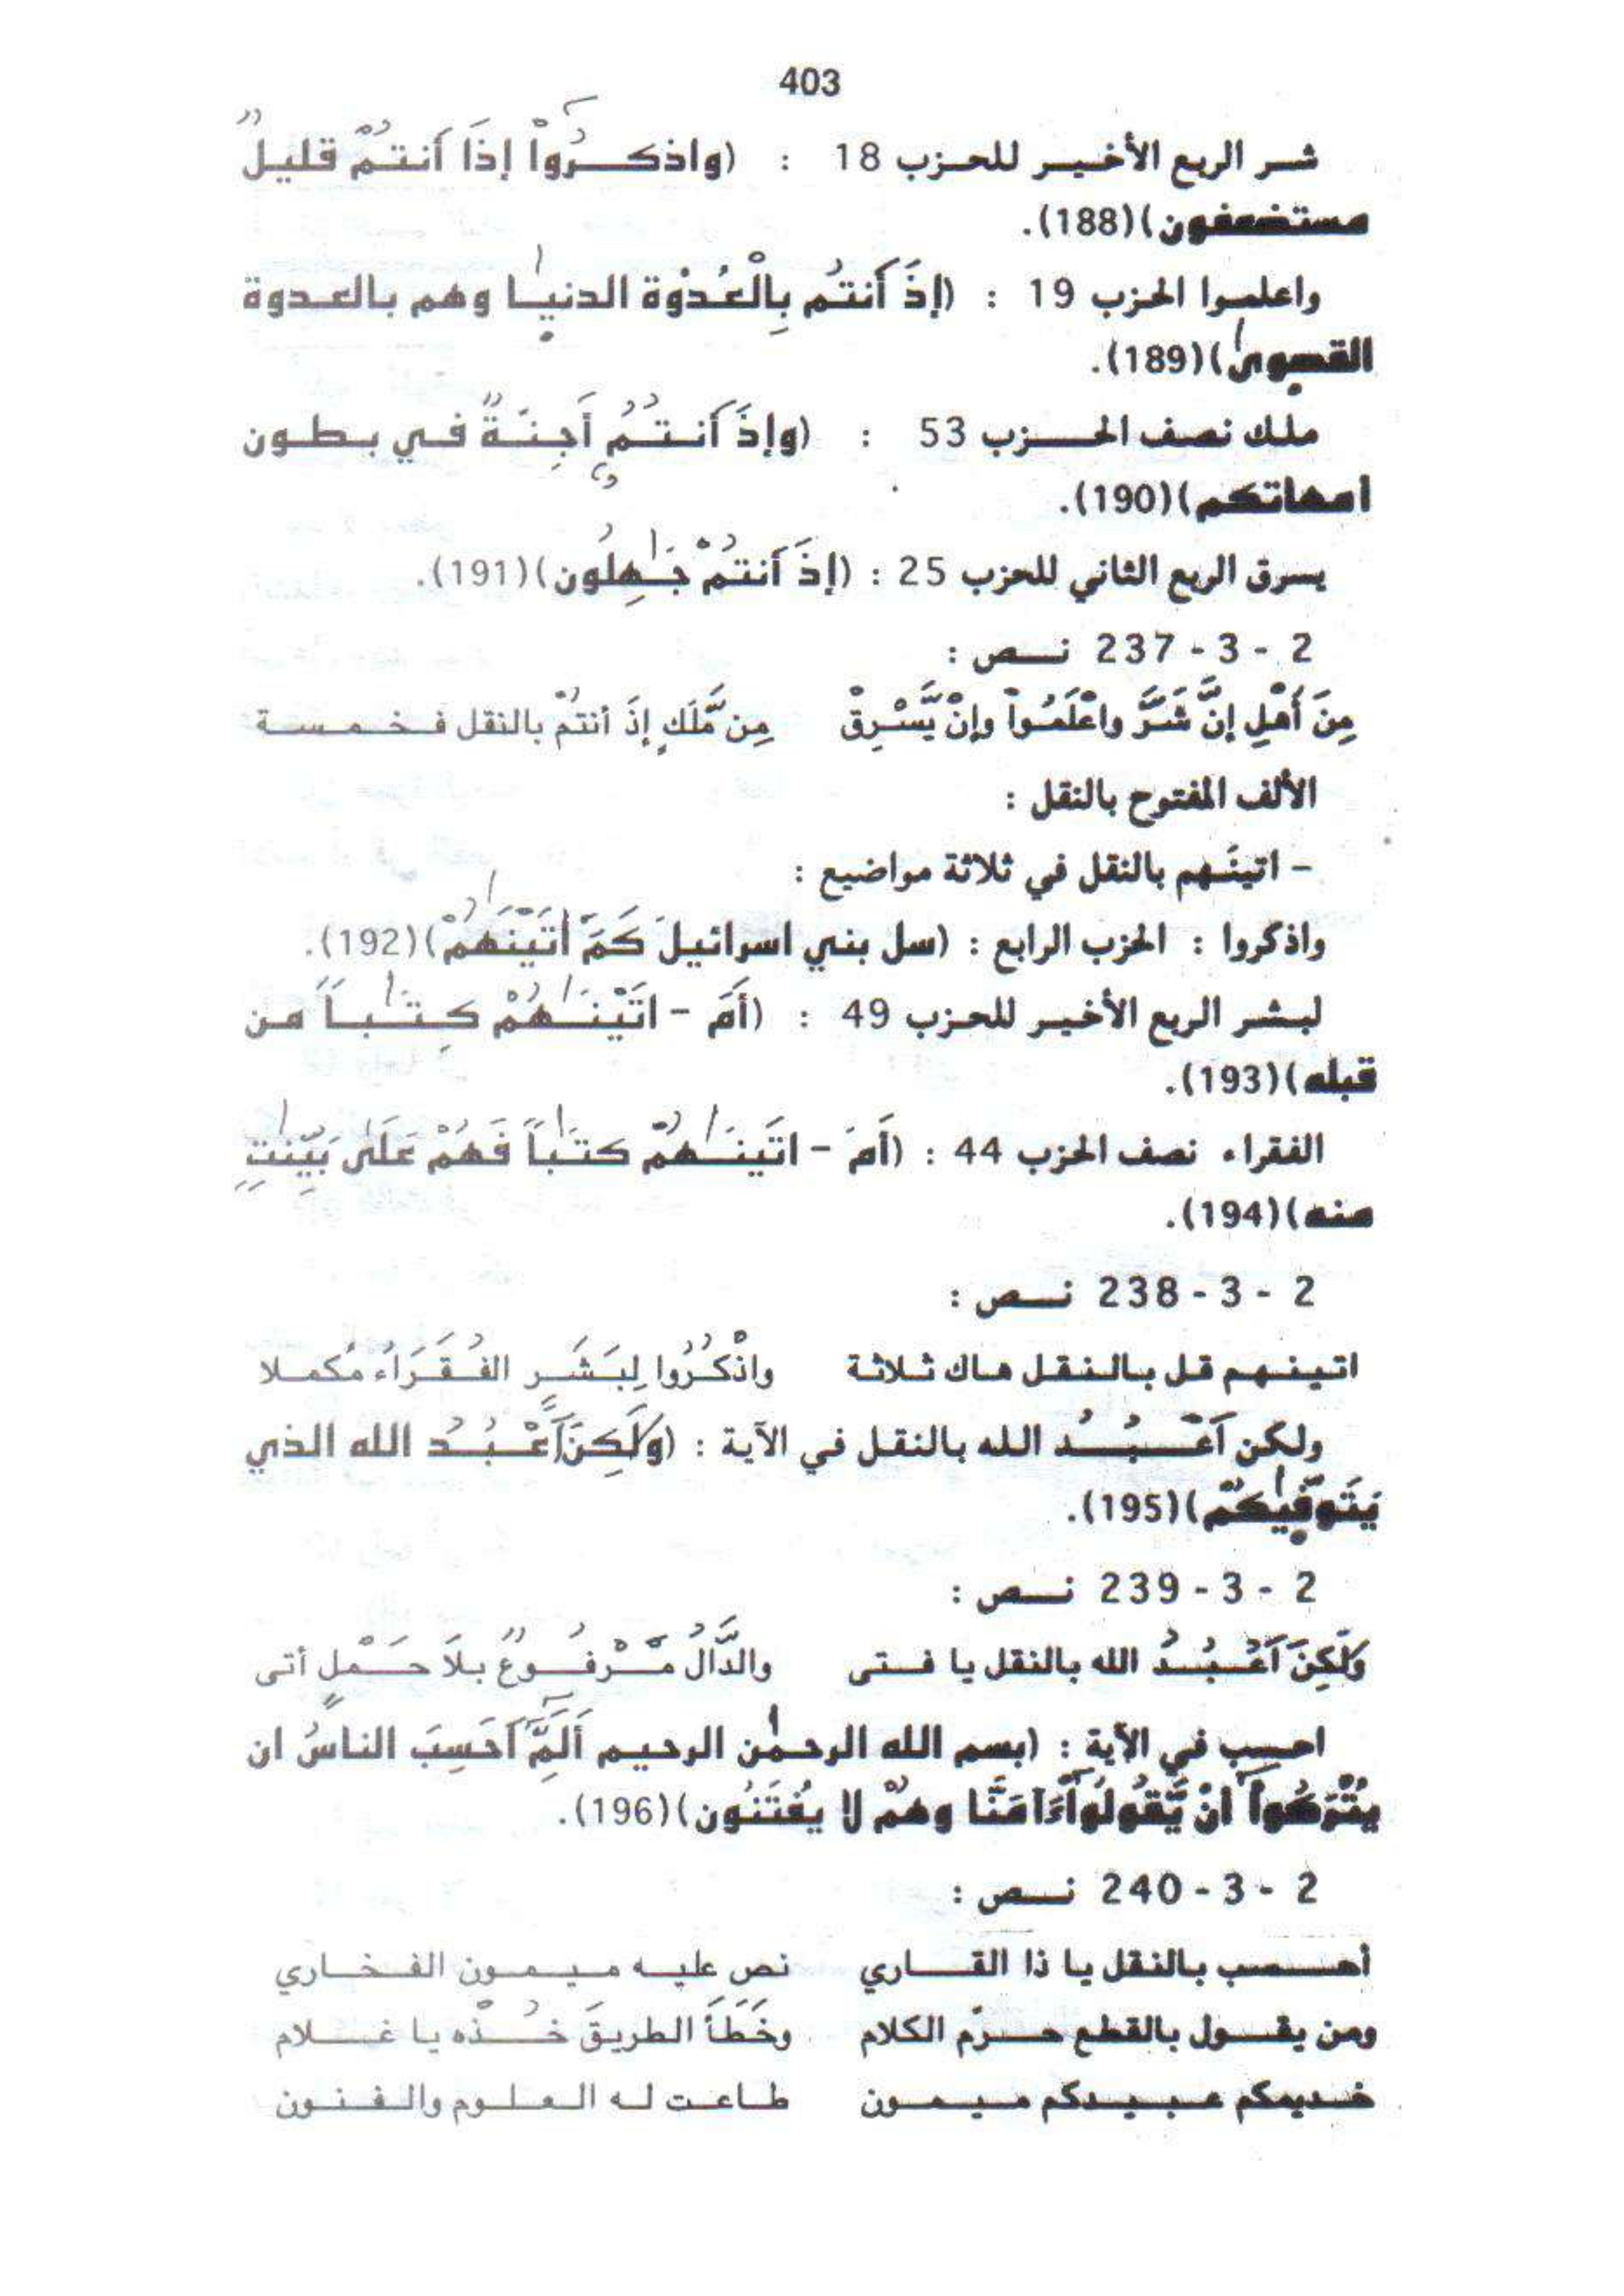 403
شر الربع الأخير للحزب 18 : (واذكرُواْ إذَا أنتمْ قليلٌ
مستضعفون)(188).
واعلموا الحزب 19 : (إذَ أنتُم بِالْعُدْوَة الدنيا وهم بالعدوة
القصوى)(189).
ملك نصف الحزب 53 : (وإذَ أنتُمُ أَجِنَةٌ في بطون
امهاتكم)(190).
يسرق الربع الثاني للحزب 25 : (إذَ أنتمْ جَاهِلُون)(191).
2 - 3 - 237 نص :
مِنَ أَهلِ إنَّ شَرَّ واعْلَمُواْ وإنْ يَّسْرِقْ مِن مَّلَكٍ إذَ أنتمْ بالنقل فخمسة
الألف المفتوح بالنقل :
- اتينَهم بالنقل في ثلاثة مواضيع :
واذكروا : الحزب الرابع : (سل بني اسرائيلَ كَمَ اتَيْنَهُمْ)(192).
لبشر الربع الأخير للحزب 49 : (أَمَ - اتَيْنَاهُمْ كِتَاباً من
قبله)(193).
الفقراء نصف الحزب 44 : (أَمَ - اتَينَاهمْ كتَاباً فَهُمْ عَلَى بَيّنَتٍ
منه)(194).
2 - 3 - 238 نص :
اتينهم قل بالنقل هاك ثلاثة واذْكُرُوا لِبَشَرٍ الفُقَرَاءُ مُكملا
ولكن أعْبُدُ الله بالنقل في الآية : (ولَكِنَ أعْبُدُ الله الذي
يَتَوفّيكمْ)(195).
2 - 3 - 239 نص :
ولَكِنَ أعْبُدُ الله بالنقل يا فتى والدَّالُ مَرْفُوعٌ بلاَ حَمْلٍ أتى
احسب في الآية : (بسم الله الرحمٰن الرحيم ألَمِّ أحَسِبَ الناسُ ان
يتْرَكُواْ انْ يَّقُولُواْ ءَامَنَّا وهمْ لا يفْتَنُون)(196).
2 - 3 - 240 نص :
أحسب بالنقل يا ذا القاري نص عليه ميمون الفخاري
ومن يقول بالقطع حرّم الكلام وخَطَأَ الطريقَ خُذْه يا غلام
خديمكم عبيدكم ميمون طاعت له العلوم والفنون